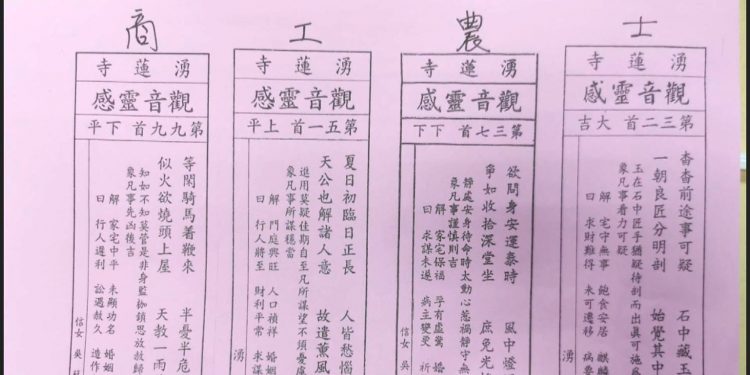 士
湧蓮寺
觀音靈感
第三二首 大吉
杳杳前途事可疑 石中藏玉
一朝良匠分明剖 始覺其中
玉在石中匠手猶疑待剖而出真可施為
象凡事着力可疑
解 家宅守無事 飽食安居 麒麟
曰 求財難得 未可遷移 病
農
湧蓮寺
觀音靈感
第三七首 下下
欲問身安運泰時 風中燈
爭如收拾深堂坐 庶免光
靜處安身待命時太動心惹禍靜守無
象凡事謹慎則吉
解 家宅保福 孕有虛驚 婚
曰 求謀未遂 病主變爻 祈
信女 吳
工
湧蓮寺
觀音靈感
第五一首 上平
夏日初臨日正長 人皆愁惱
天公也解諸人意 故遣薰風
進用莫疑佳期自至凡所謀望不須憂慮
象凡事所謀穩當
解 門庭興旺 人口禎祥 婚姻
曰 行人將至 財利平常 求謀
湧
商
湧蓮寺
觀音靈感
第九九首 下平
等閑騎馬着鞭來 半憂半危
似火欲燒頭上屋 天教一雨
知如不知莫管是非身監枷鎖思放赦歸
象凡事先凶後吉
解 家宅中平 未顯功名 婚姻
曰 行人遲利 訟遇赦久 造作
信女 吳
湧